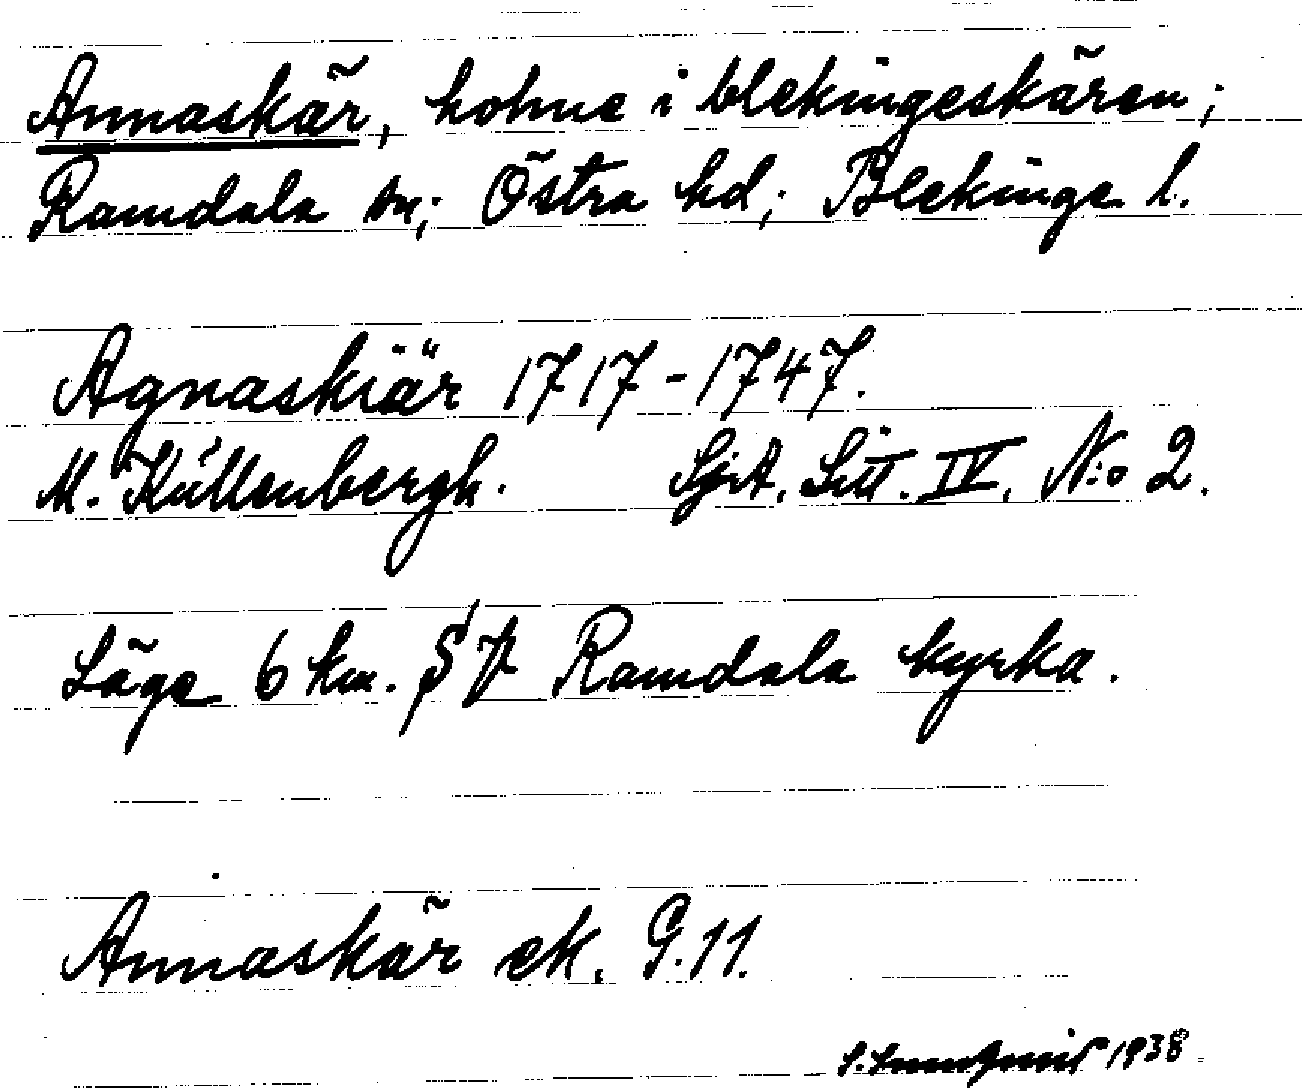 Annaskär, holme i blekingeskären;
Ramdala sn; Östra hd; Blekinge l.
Agnaskiär 1717-1747.
M. Küllenbergh. SjrA. Litt. IV. N:o 2.
Läge 6 km. S Ramdala kyrka.
Annaskär ek. G.11.
1938